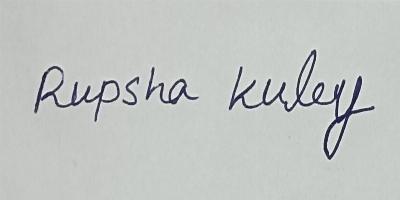 Rupsha Kuley